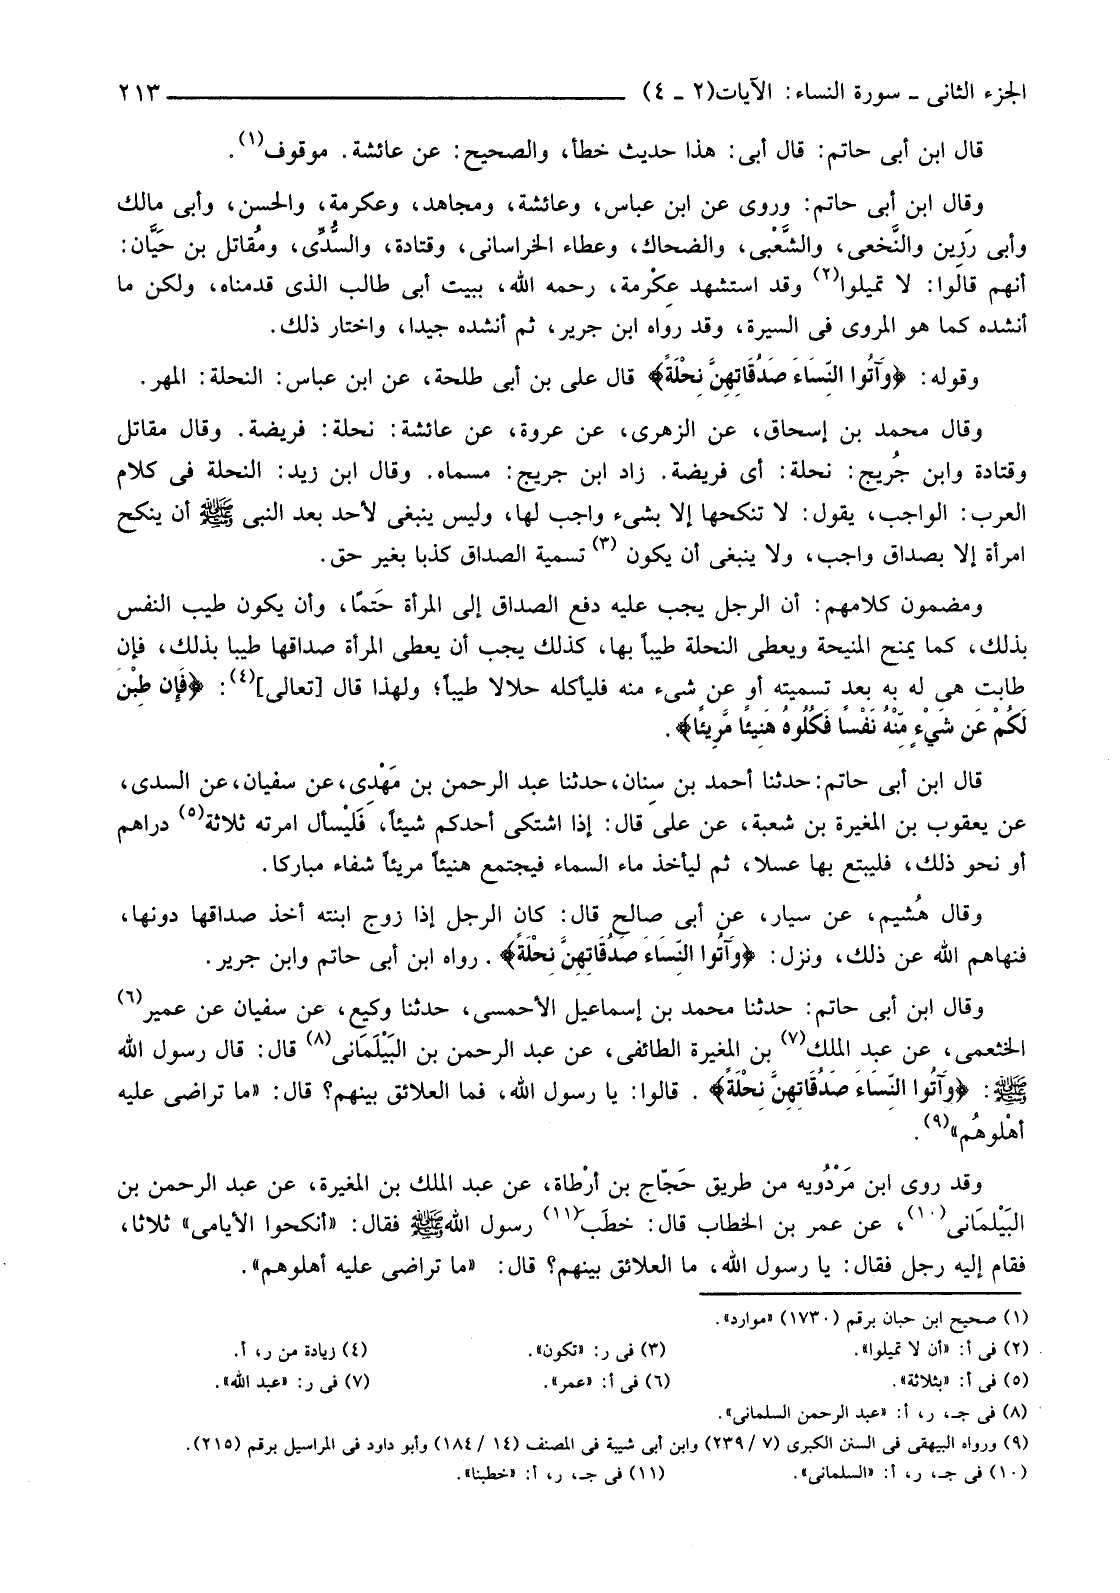 الجزء الثانى ـ سورة النساء: الآيات(٢ ـ ٤) ـــــــــــــــــــــــــــــــــــــ ٢١٣
قال ابن أبى حاتم: قال أبى: هذا حديث خطأ، والصحيح: عن عائشة. موقوف(١).
وقال ابن أبى حاتم: وروى عن ابن عباس، وعائشة، ومجاهد، وعكرمة، والحسن، وأبى مالك
وأبى رَزِين والنَّخعى، والشَّعْبى، والضحاك، وعطاء الخراسانى، وقتادة، والسُّدِّى، ومُقاتل بن حَيَّان:
أنهم قالوا: لا تميلوا(٢) وقد استشهد عِكْرمة، رحمه الله، ببيت أبى طالب الذى قدمناه، ولكن ما
أنشده كما هو المروى فى السيرة، وقد رواه ابن جرير، ثم أنشده جيدا، واختار ذلك.
وقوله: ﴿وَآتُوا النِّسَاءَ صَدُقَاتِهِنَّ نِحْلَةً﴾ قال على بن أبى طلحة، عن ابن عباس: النحلة: المهر.
وقال محمد بن إسحاق، عن الزهرى، عن عروة، عن عائشة: نحلة: فريضة. وقال مقاتل
وقتادة وابن جُريج: نحلة: أى فريضة. زاد ابن جريج: مسماه. وقال ابن زيد: النحلة فى كلام
العرب: الواجب، يقول: لا تنكحها إلا بشىء واجب لها، وليس ينبغى لأحد بعد النبى ﷺ أن ينكح
امرأة إلا بصداق واجب، ولا ينبغى أن يكون (٣) تسمية الصداق كذبا بغير حق.
ومضمون كلامهم: أن الرجل يجب عليه دفع الصداق إلى المرأة حَتمًا، وأن يكون طيب النفس
بذلك، كما يمنح المنيحة ويعطى النحلة طيباً بها، كذلك يجب أن يعطى المرأة صداقها طيبا بذلك، فإن
طابت هى له به بعد تسميته أو عن شىء منه فليأكله حلالا طيباً؛ ولهذا قال [تعالى](٤): ﴿فَإِن طِبْنَ
لَكُمْ عَن شَيْءٍ مِّنْهُ نَفْسًا فَكُلُوهُ هَنِيئًا مَّرِيئًا﴾.
قال ابن أبى حاتم: حدثنا أحمد بن سِنان، حدثنا عبد الرحمن بن مَهْدِى، عن سفيان، عن السدى،
عن يعقوب بن المغيرة بن شعبة، عن على قال: إذا اشتكى أحدكم شيئاً، فَليْسأل امرته ثلاثة(٥) دراهم
أو نحو ذلك، فليبتع بها عسلا، ثم ليأخذ ماء السماء فيجتمع هنيئاً مريئاً شفاء مباركا.
وقال هُشيم، عن سيار، عن أبى صالح قال: كان الرجل إذا زوج ابنته أخذ صداقها دونها،
فنهاهم الله عن ذلك، ونزل: ﴿وَآتُوا النِّسَاءَ صَدُقَاتِهِنَّ نِحْلَةً﴾ . رواه ابن أبى حاتم وابن جرير.
وقال ابن أبى حاتم: حدثنا محمد بن إسماعيل الأحمسى، حدثنا وكيع، عن سفيان عن عمير(٦)
الخثعمى، عن عبد الملك(٧) بن المغيرة الطائفى، عن عبد الرحمن بن البَيْلَمَانى(٨) قال: قال رسول الله
ﷺ: ﴿وَآتُوا النِّسَاءَ صَدُقَاتِهِنَّ نِحْلَةً﴾ . قالوا: يا رسول الله، فما العلائق بينهم؟ قال: «ما تراضى عليه
أهْلوهُم»(٩).
وقد روى ابن مَرْدُويه من طريق حَجّاج بن أرْطاة، عن عبد الملك بن المغيرة، عن عبد الرحمن بن
البَيْلمَانى(١٠)، عن عمر بن الخطاب قال: خطَب(١١) رسول الله ﷺ فقال: «أنكحوا الأيامى» ثلاثا،
فقام إليه رجل فقال: يا رسول الله، ما العلائق بينهم؟ قال: «ما تراضى عليه أهلوهم».
(١) صحيح ابن حبان برقم (١٧٣٠) «موارد».
(٢) فى أ: «أن لا تميلوا». (٣) فى ر: «تكون». (٤) زيادة من ر، أ.
(٥) فى أ: «بثلاثة». (٦) فى أ: «عمر». (٧) فى ر: «عبد الله».
(٨) فى جـ، ر، أ: «عبد الرحمن السلمانى».
(٩) ورواه البيهقى فى السنن الكبرى (٧/ ٢٣٩) وابن أبى شيبة فى المصنف (١٤/ ١٨٤) وأبو داود فى المراسيل برقم (٢١٥).
(١٠) فى جـ، ر، أ: «السلمانى». (١١) فى جـ، ر، أ: «خطبنا».